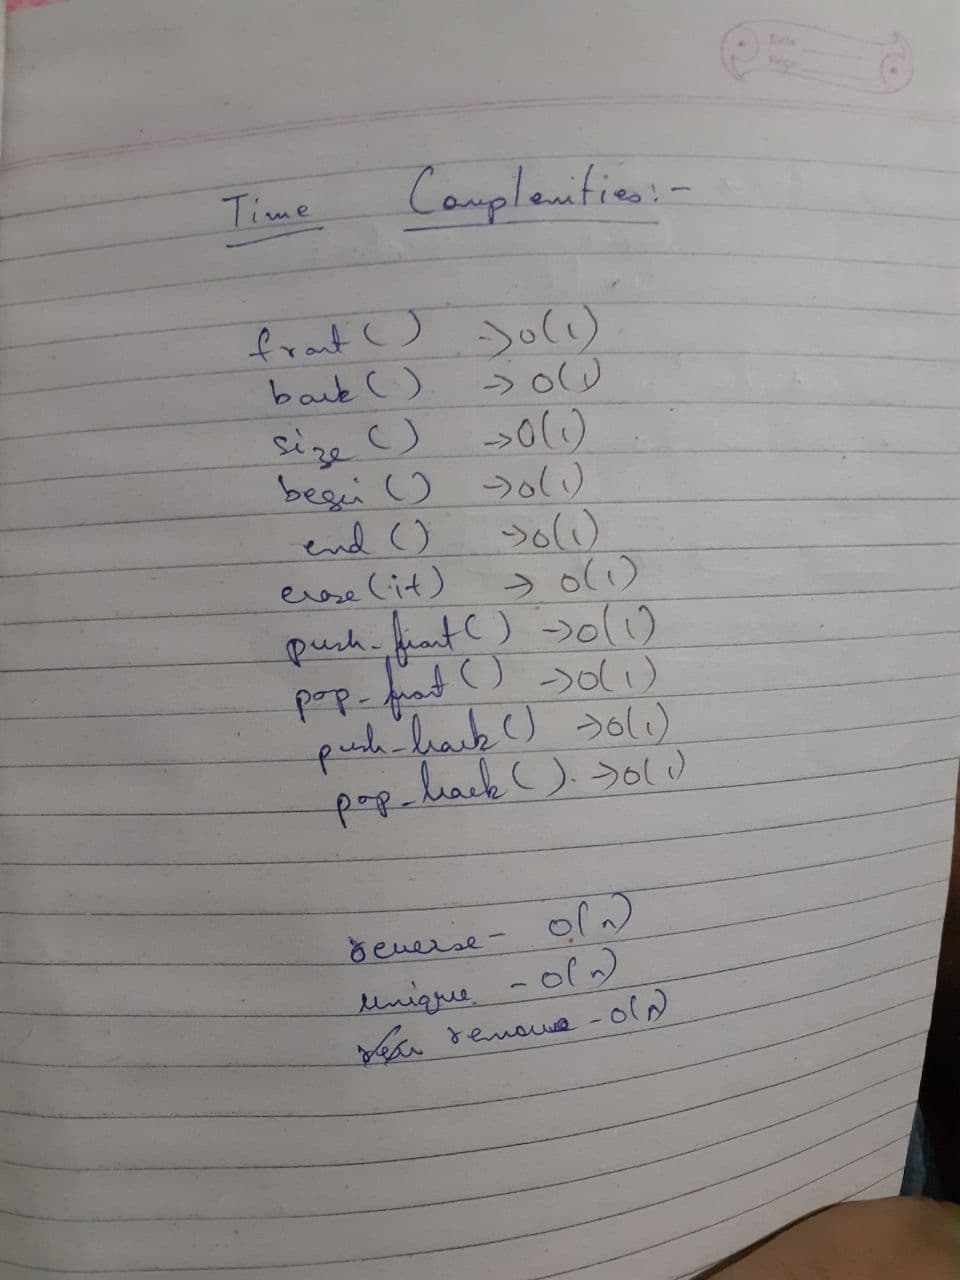 Date
Page
Time Complexities:-
front() →O(1)
back() →O(1)
size() →O(1)
begin() →O(1)
end() →O(1)
erase(it) → O(1)
push-front() →O(1)
pop-front() →O(1)
push-back() →O(1)
pop-back(). →O(1)
reverse - O(n)
unique - O(n)
remove - O(n)